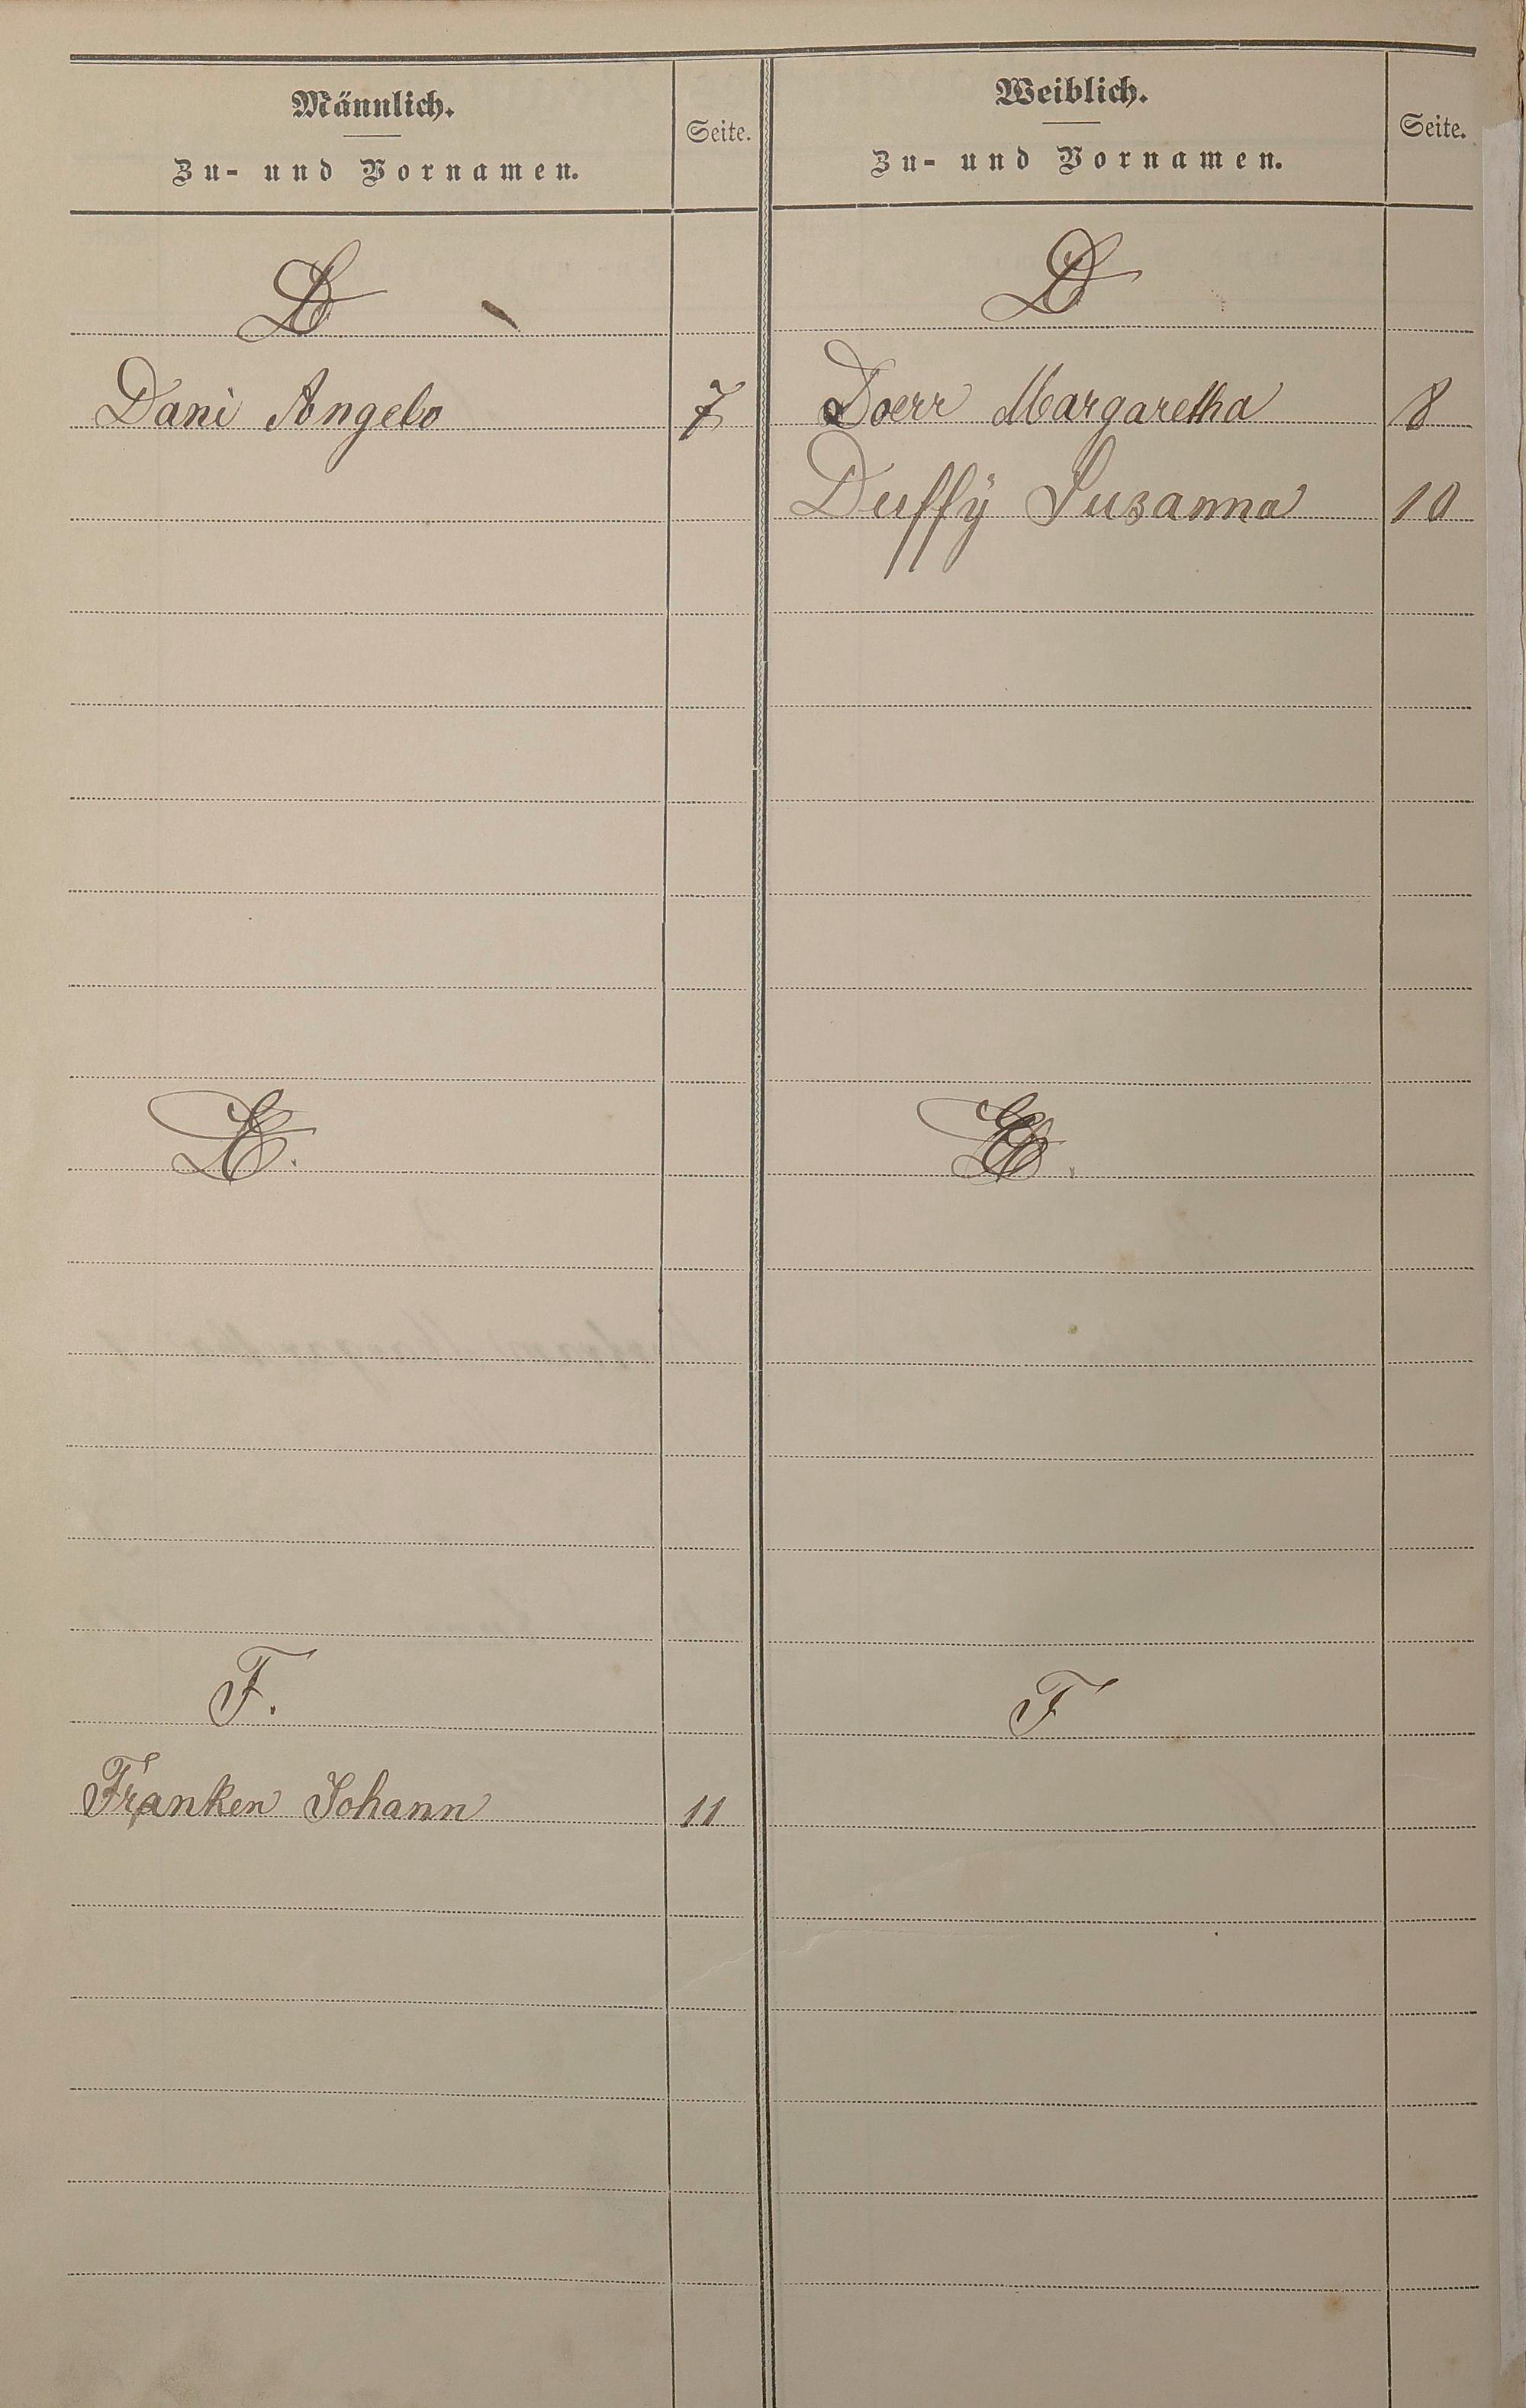 Männlich.
Zu- und Vornamen.
Seite.
Weiblich.
Zu- und Vornamen.
Seite.
D
D
Dani Angelo 7
Doerr Margaretha 8
Duffÿ Suzanna 10
E.
E.
F.
F
Franken Johann 11